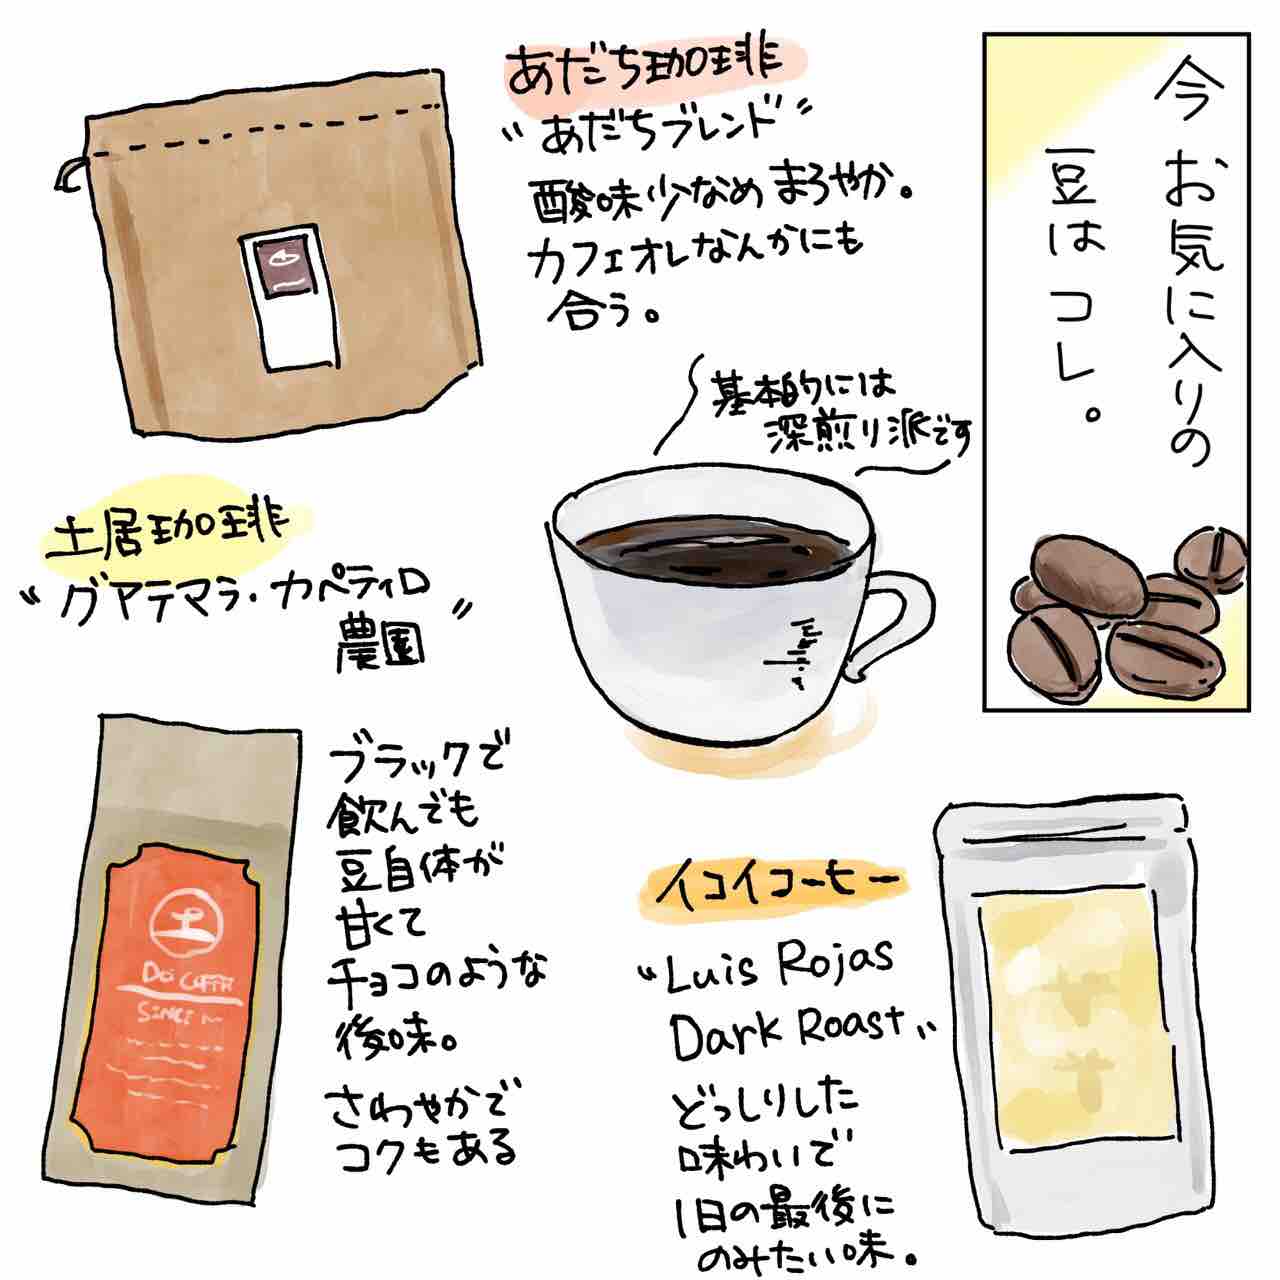 今お気に入りの
豆はコレ。
あだち珈琲
"あだちブレンド"
酸味少なめまろやか。
カフェオレなんかにも
合う。
基本的には
深煎り派です
土居珈琲
"グアテマラ・カペティロ
農園"
ブラックで
飲んでも
豆自体が
甘くて
チョコのような
後味。
さわやかで
コクもある
土
イコイコーヒー
"Luis Rojas
Dark Roast"
どっしりした
味わいで
1日の最後に
のみたい味。